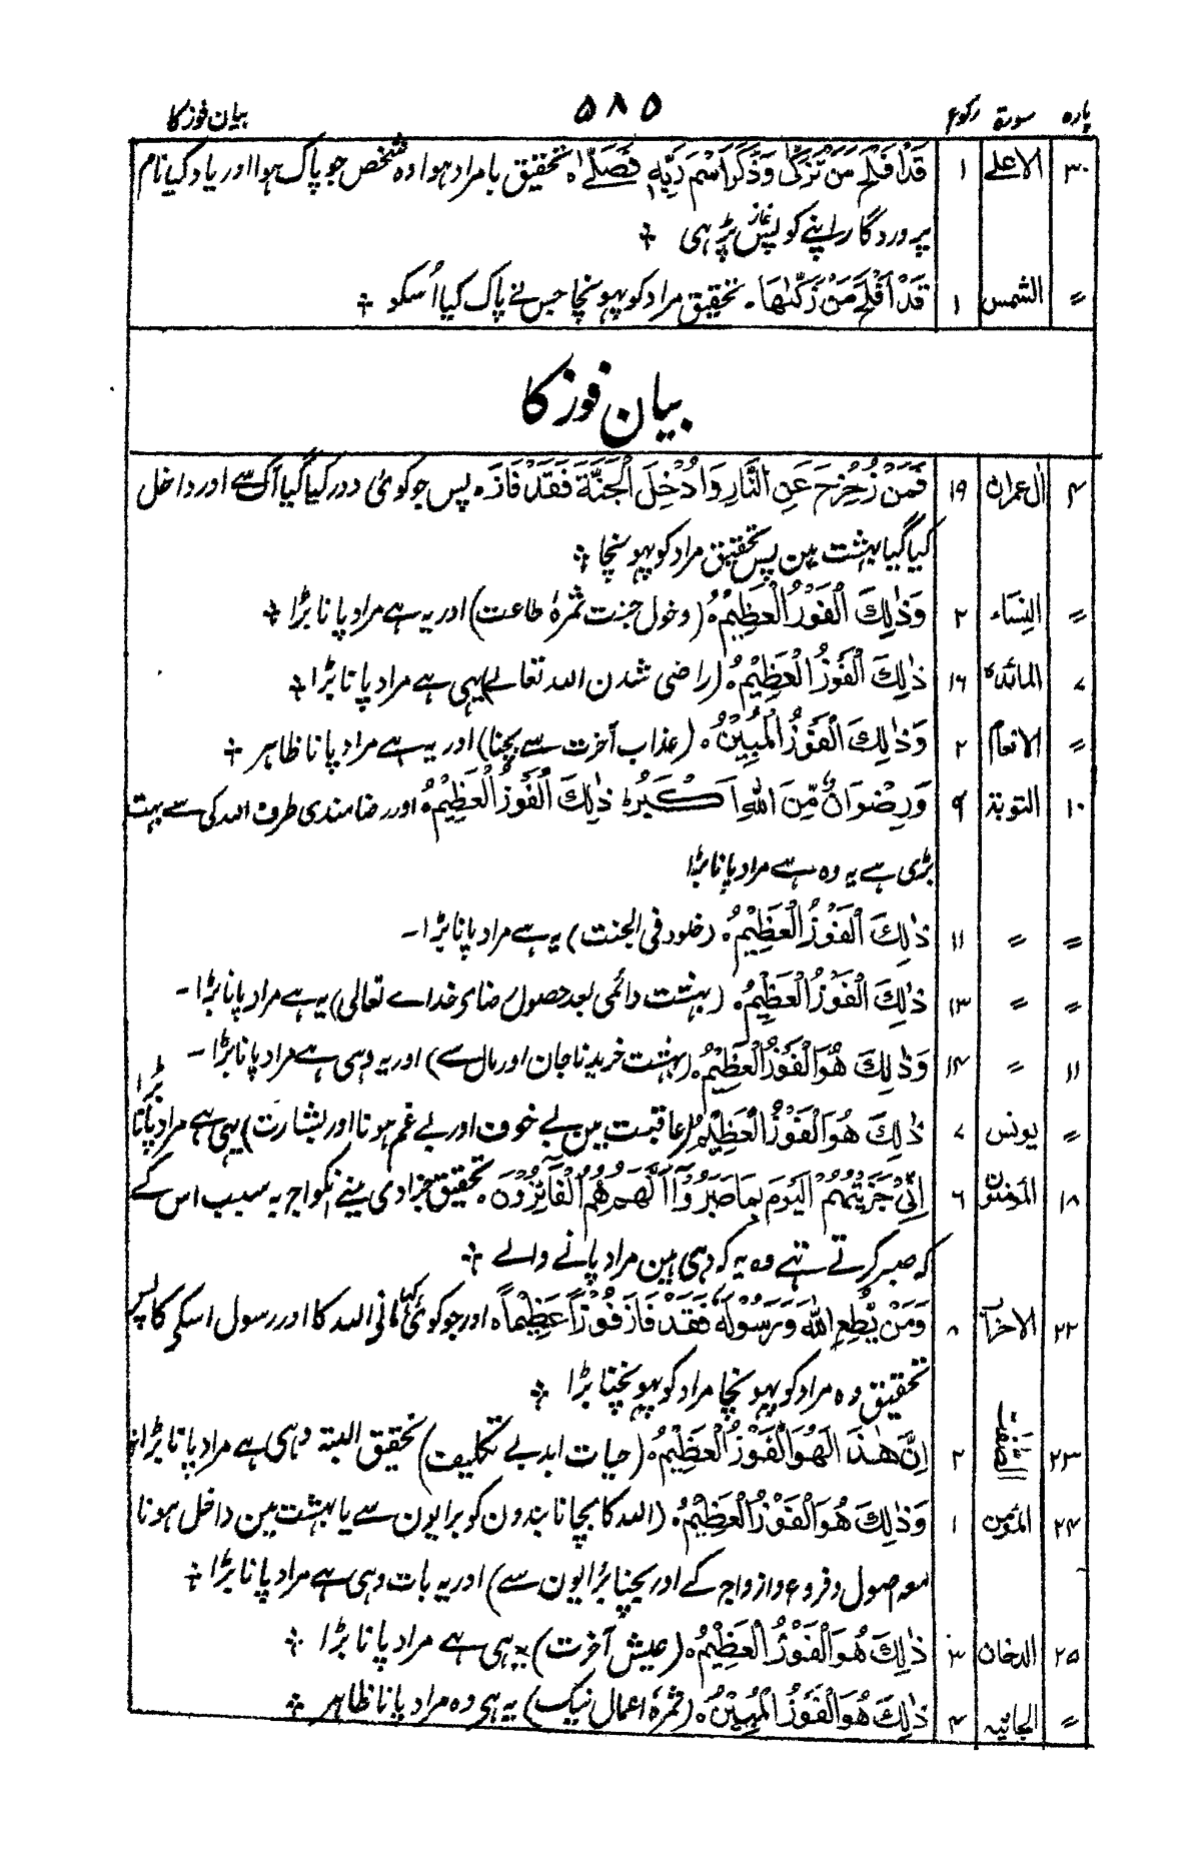 پارہ سورۃ رکوع ۵۸۵ بیان فوز کا
۳۰ الاعلیٰ ۱ قَدْ اَفْلَحَ مَنْ تَزَكّٰى وَذَكَرَ اسْمَ رَبِّهٖ فَصَلّٰى ہ تحقیق بامراد ہوا وہ شخص جو پاک ہوا اور یاد کیا نام
پروردگار اپنے کو پس نماز پڑہی ÷
〃 الشمس ۱ قَدْ اَفْلَحَ مَنْ زَكّٰىهَا۔ تحقیق مراد کو پہونچا جس نے پاک کیا اُسکو ÷
بیان فوز کا
۴ اٰل عمران ۱۹ فَمَنْ زُحْزِحَ عَنِ النَّارِ وَاُدْخِلَ الْجَنَّةَ فَقَدْ فَازَ ہ پس جو کوئی دور کیا گیا آگ سے اور داخل
کیا گیا بہشت مین پس تحقیق مراد کو پہونچا ÷
〃 النساء ۲ وَذٰلِكَ الْفَوْزُ الْعَظِيْمُ ہ (دخول جنت ثمرۂ طاعت) اور یہ ہے مراد پانا بڑا ÷
۷ المائدہ ۱۶ ذٰلِكَ الْفَوْزُ الْعَظِيْمُ ہ (راضی شدن اللہ تعالے) یہی ہے مراد پانا بڑا ÷
〃 الانعام ۲ وَذٰلِكَ الْفَوْزُ الْمُبِيْنُ ہ (عذاب آخرت سے بچنا) اور یہ ہے مراد پانا ظاہر ÷
۱۰ التوبۃ ۹ وَرِضْوَانٌ مِّنَ اللهِ اَكْبَرُ ط ذٰلِكَ الْفَوْزُ الْعَظِيْمُ ہ اور رضامندی طرف اللہ کی سے بہت
بڑی ہے یہ وہ ہے مراد پانا بڑا
〃 〃 ۱۱ ذٰلِكَ الْفَوْزُ الْعَظِيْمُ ہ (خلود فی الجنت) یہ ہے مراد پانا بڑا۔
〃 〃 ۱۳ ذٰلِكَ الْفَوْزُ الْعَظِيْمُ ہ (بہشت دائمی بعد حصول رضای خداے تعالی) یہ ہے مراد پانا بڑا۔
۱۱ 〃 ۱۴ وَذٰلِكَ هُوَ الْفَوْزُ الْعَظِيْمُ ہ (بہشت خریدنا جان اور مال سے) اور یہ وہی ہے مراد پانا بڑا۔
〃 یونس ۷ ذٰلِكَ هُوَ الْفَوْزُ الْعَظِيْمُ (عاقبت مین بے خوف اور بے غم ہونا اور بشارت) یہی ہے مراد پانا بڑا
۱۸ المؤمنون ۶ اِنِّىْ جَزَيْتُهُمُ الْيَوْمَ بِمَا صَبَرُوْٓا اَنَّهُمْ هُمُ الْفَآئِزُوْنَ ہ تحقیق جزا دی مینے انکو آج بہ سبب اس کے
کہ صبر کرتے تہے وہ یہ کہ وہی ہین مراد پانے والے ÷
۲۲ الاحزاب ۸ وَمَنْ يُّطِعِ اللهَ وَرَسُوْلَهٗ فَقَدْ فَازَ فَوْزًا عَظِيْمًا ہ اور جو کوئی کہا مانی اللہ کا اور رسول اسکی کا پس
تحقیق وہ مراد کو پہونچا مراد کو پہونچنا بڑا ÷
۲۳ الصّٰفّٰت ۲ اِنَّ هٰذَا لَهُوَ الْفَوْزُ الْعَظِيْمُ ہ (حیات ابد بے تکلیف) تحقیق البتہ وہی ہے مراد پانا بڑا ÷
۲۴ المؤمن ۱ وَذٰلِكَ هُوَ الْفَوْزُ الْعَظِيْمُ ہ (اللہ کا بچانا بندون کو برایون سے یا بہشت مین داخل ہونا
معہ اصول و فروع و ازواج کے اور بچنا برُایون سے) اور یہ بات وہی ہے مراد پانا بڑا ÷
۲۵ الدخان ۳ ذٰلِكَ هُوَ الْفَوْزُ الْعَظِيْمُ ہ (عیش آخرت) یہ ہی ہے مراد پانا بڑا ÷
〃 الجاثیہ ۴ ذٰلِكَ هُوَ الْفَوْزُ الْمُبِيْنُ ہ (ثمرۂ اعمال نیک) یہ ہی وہ مراد پانا ظاہر ÷